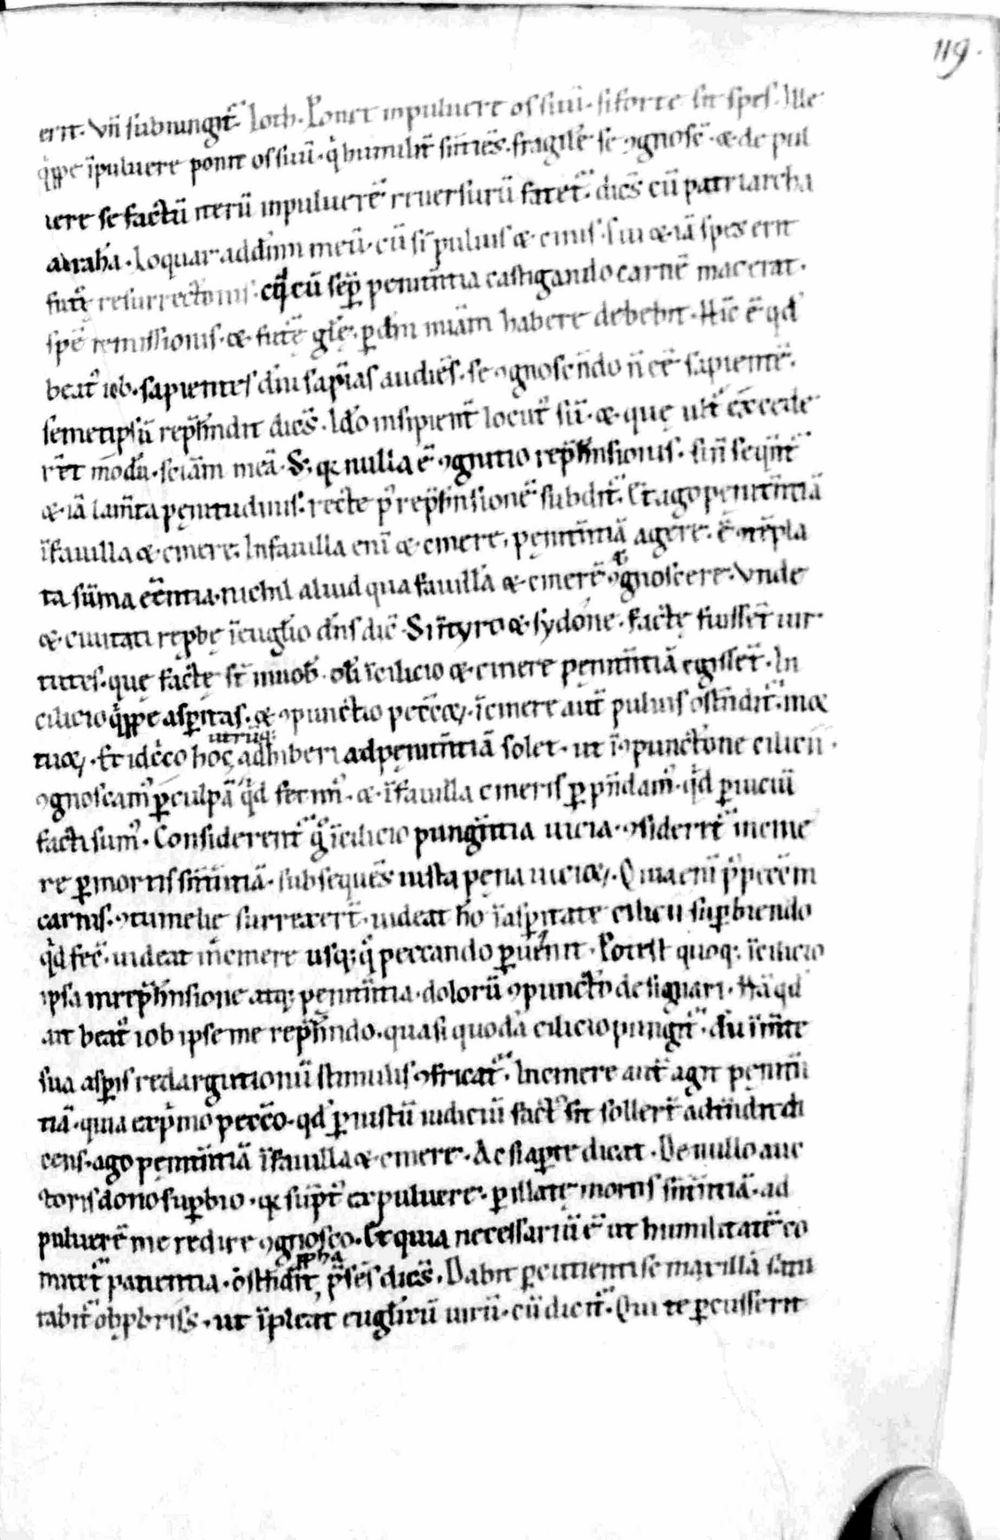 119.
erit. Vñ subiungit̃. Ioth. Ponet inpuluere os suũ. si forte sit spes. Ille
q̃ppe ĩpuluere ponit os suũ. q̇ humilit̃ sẽties. fragilẽ se ꝯgnosẽ. & de pul
uere se factũ iterũ inpuluerẽ reuersurũ fatet̃. dicẽs cũ patriarcha
abrahã. Loquar addñm meũ. cũ sĩ puluis & cinis. sui & iã spes erit
futurę resurrectionis. cũ sep̃ penitñtia castigando carnẽ macerat.
spẽ remissionis. & futurę glę. p̱ dñi miãm habere debebit. Hĩc ẽ qđ
beatꝰ iob. sapientes dñi sapĩas audiẽs. se ꝯgnoscñdo ñ eẽ sapientẽ.
semetipsũ repħndit dicẽs. Ideo insipient̃ locutꝰ sũ. & quę ult̃ excede
rẽt modũ. sciam̃ meã. S; q; nulla ẽ ꝯgnitio repħnsionis. si ñ seqñt̃
& iã lam̃ta pęnitudinis. recte p̃ repħnsionẽ subdit̃. Et ago pęnitñtiã
ĩfauilla & cinere. Infauilla enĩ & cinere, pęnitñtiã agere. ẽ ꝯtẽpla
ta sũma eẽntia. nichil aliud quã fauillã & cinerẽ se ꝯgnoscere. Vnde
& ciuitati rep̱bę ĩeuglio dñs diẽ. Si ñtyro & sydone. factę fuissẽt uir
tutes. quę factę st̃ inuob̃. olĩ ĩcilicio & cinere penitñtiã egissẽt. In
cilicio q̃ppe asp̱itas. & ꝯpunctio peccõꝝ. ĩcinere aut̃ puluis ostñdit̃ mor
tuoꝝ. Et idcco hoc utrũq; adhiberi adpęnitñtiã solet. ut ĩꝯpunctione cilicii.
ꝯgnoscamꝰ p̱culpã qđ fecimꝰ. & ĩfauilla cineris p̱pñdamꝰ. qđ p̱iuiciũ
facti sumꝰ. Considerent̃ g̊ ĩcilicio pungñtia uicia. ꝯsideret̃ incine
re p̱mortis sñtñtiã. subsequẽs iusta pęna uicioꝝ. Quia enĩ p̃ peccm̃
carnis. ꝯtumelię surrexer̃t. uideat hõ ĩasp̱itate cilicii sup̱biendo
qđ fec̃. uideat ĩcinere usq; q̊ peccando p̱uenit. Potest quoq; ĩcilicio
ipsa ĩnrepħnsione atq; penitñtia. dolorũ ꝯpunctio designari. Nã qđ
ait beatꝰ iob ipse me repħndo. quasi quodã cilicio pungit̃. dũ ĩm̃te
sua asp̱is redargutionũ stimulis ꝯfricat̃. Incinere aut̃ agit penitñ
tiã. quia exp̃mo peccõ. qđ p̱iustũ iudiciũ factꝰ sit sollert̃ adtñdit di
cens. ago pęnitñtiã ĩfauilla & cinere. Ac si ap̱te dicat. De nullo auc
toris dono sup̱bio. q; sũptꝰ ex puluere. p̱ illatę mortis sñtñtiã. ad
puluerẽ me redire ꝯgnosco. Et quia necessariũ ẽ ut humilitatẽ co
mitet̃ patientia. ostñdit, ꝓpħa p̃sẽs dicẽs. Dabit p̱cutienti se maxillã satu
rabit̃ obp̱briis. ut ĩpleat eugliicũ uirũ. cũ dicit̃. Qui te p̱cusserit